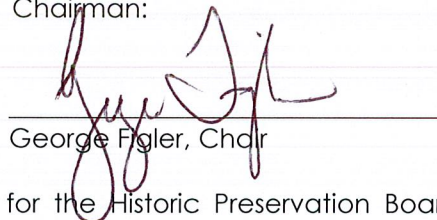 Chairman:
George Figler, Chair
for the Historic Preservation Boar